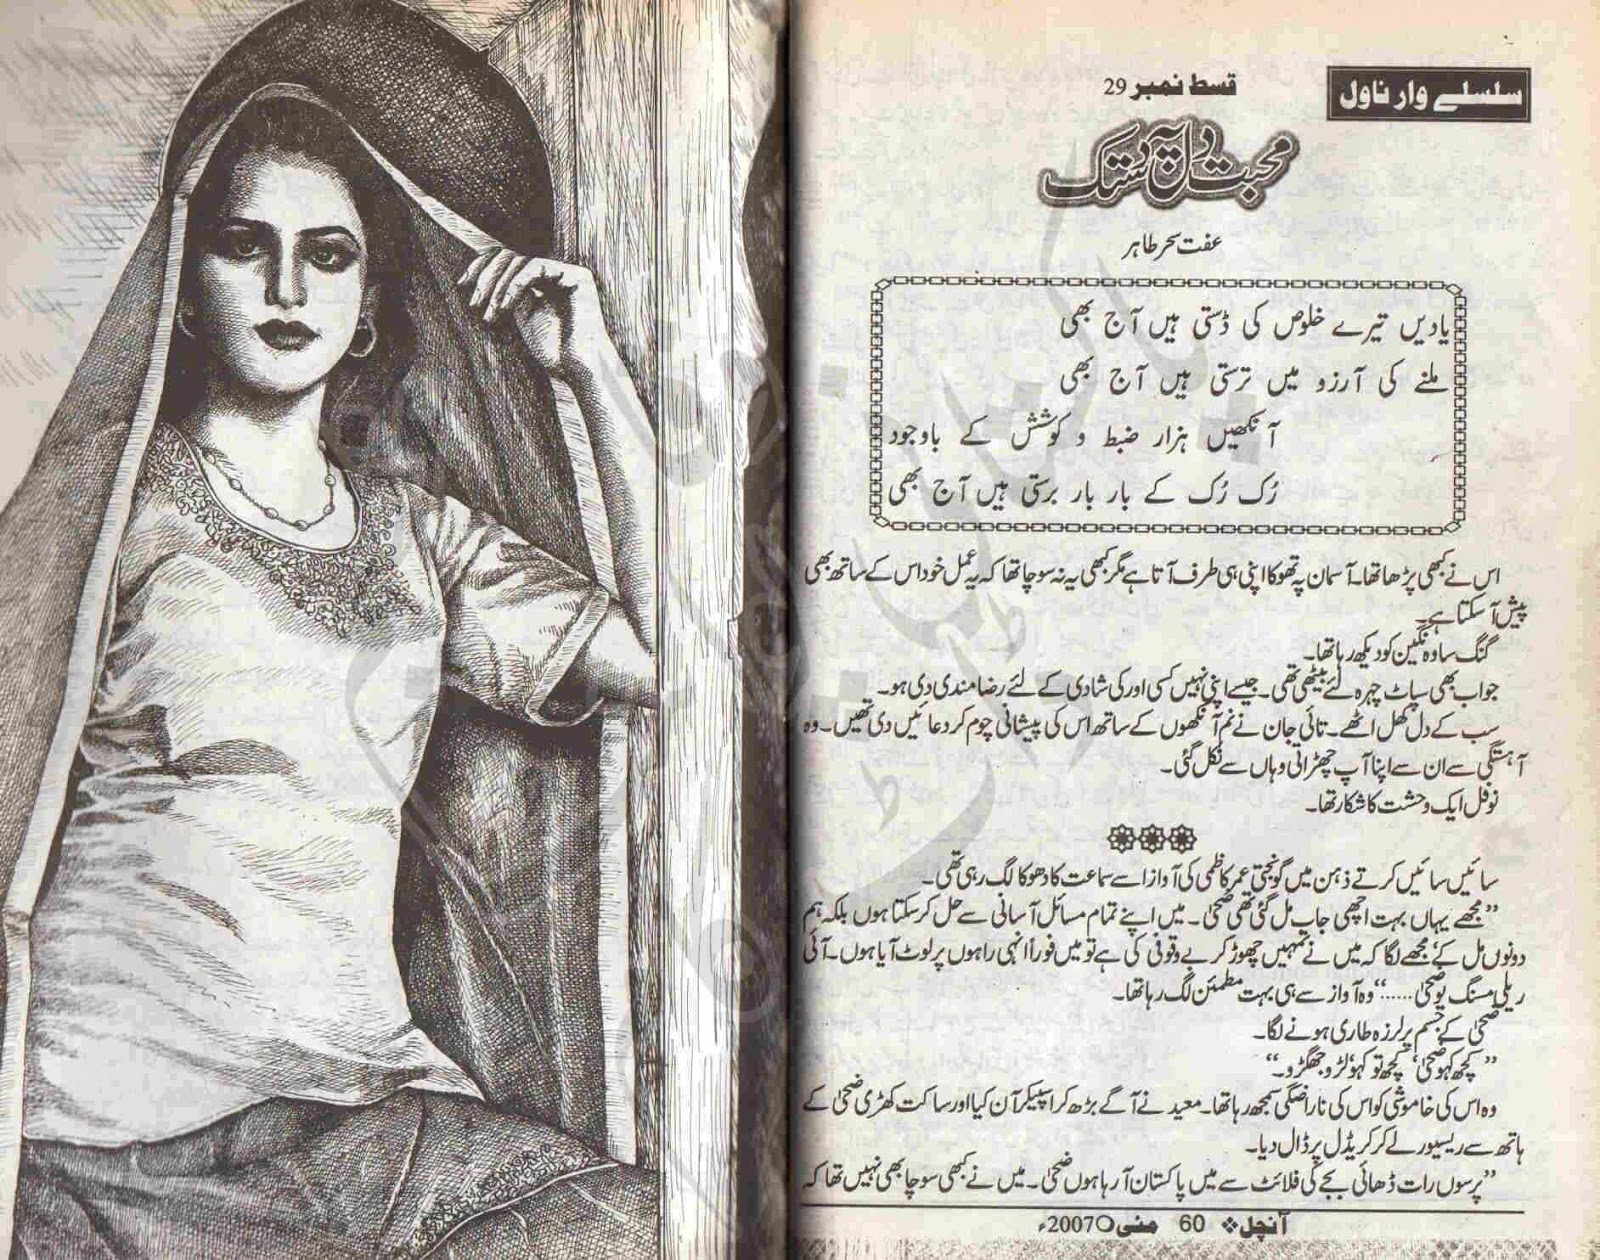 سلسلے وار ناول
قسط نمبر 29
محبت دل پہ دستک
عفت سحر طاہر
یادیں تیرے خلوص کی ڈستی ہیں آج بھی
ملنے کی آرزو میں ترستی ہیں آج بھی
آنکھیں ہزار ضبط و کوشش کے باوجود
رُک رُک کے بار بار برستی ہیں آج بھی
اس نے کبھی پڑھا تھا۔ آسمان پہ تھوکا اپنی ہی طرف آتا ہے مگر کبھی یہ نہ سوچا تھا کہ یہ عمل خود اس کے ساتھ بھی
پیش آ سکتا ہے۔
گنگ سا وہ نگین کو دیکھ رہا تھا۔
جو اب بھی سپاٹ چہرہ لئے بیٹھی تھی۔ جیسے اپنی نہیں کسی اور کی شادی کے لئے رضا مندی دی ہو۔
سب کے دل کھل اٹھے۔ تائی جان نے نم آنکھوں کے ساتھ اس کی پیشانی چوم کر دعائیں دی تھیں۔ وہ
آہستگی سے ان سے اپنا آپ چھڑاتی وہاں سے نکل گئی۔
نوفل ایک وحشت کا شکار تھا۔
سائیں سائیں کرتے ذہن میں گونجتی عمر کاظمی کی آواز اسے سماعت کا دھوکا لگ رہی تھی۔
”مجھے یہاں بہت اچھی جاب مل گئی تھی ضحیٰ۔ میں اپنے تمام مسائل آسانی سے حل کر سکتا ہوں بلکہ ہم
دونوں مل کے‘ مجھے لگا کہ میں نے تمہیں چھوڑ کر بے وقوفی کی ہے تو میں فوراً انہی راہوں پر لوٹ آیا ہوں۔ آئی
ریلی مسنگ یو ضحیٰ......“ وہ آواز سے ہی بہت مطمئن لگ رہا تھا۔
ضحیٰ کے جسم پر لرزہ طاری ہونے لگا۔
”کچھ کہو ضحیٰ‘ کچھ تو کہو‘ لڑو جھگڑو۔“
وہ اس کی خاموشی کو اس کی ناراضگی سمجھ رہا تھا۔ معید نے آگے بڑھ کر اسپیکر آن کیا اور ساکت کھڑی ضحیٰ کے
ہاتھ سے ریسیور لے کر کریڈل پر ڈال دیا۔
”پرسوں رات ڈھائی بجے کی فلائٹ سے میں پاکستان آ رہا ہوں ضحیٰ۔ میں نے کبھی سوچا بھی نہیں تھا کہ
آنچل 60 مئی 2007ء